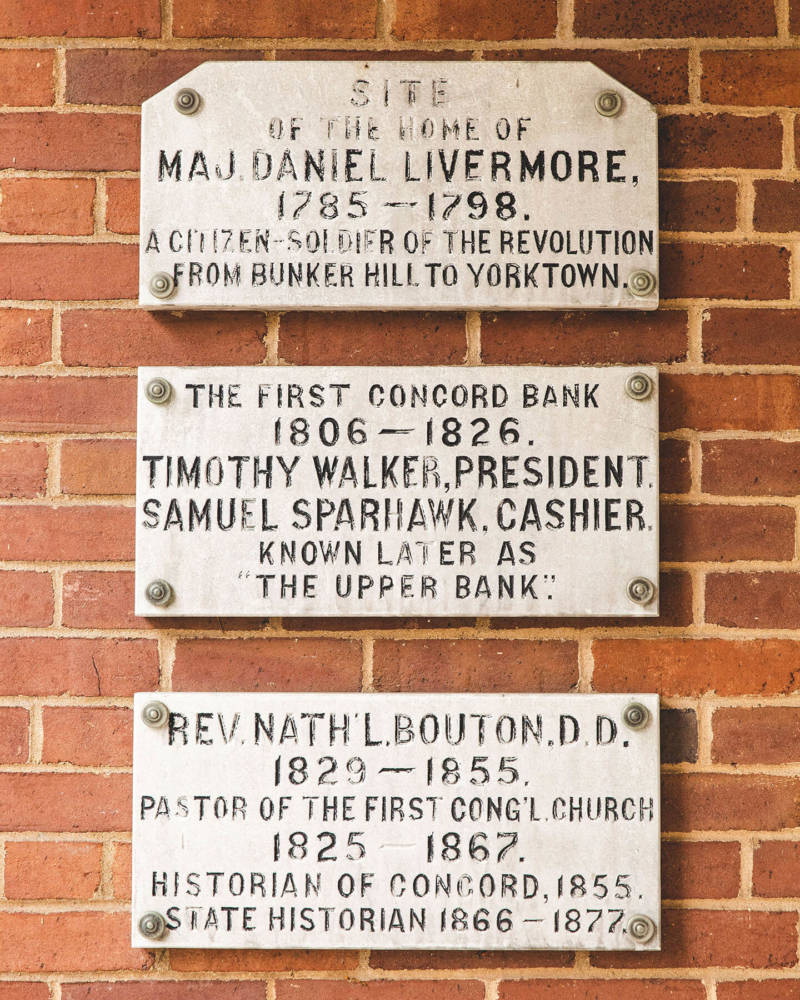 SITE
OF THE HOME OF
MAJ. DANIEL LIVERMORE,
1785 — 1798.
A CITIZEN-SOLDIER OF THE REVOLUTION
FROM BUNKER HILL TO YORKTOWN.
THE FIRST CONCORD BANK
1806 — 1826.
TIMOTHY WALKER, PRESIDENT.
SAMUEL SPARHAWK, CASHIER.
KNOWN LATER AS
"THE UPPER BANK".
REV. NATH'L. BOUTON, D. D.
1829 — 1855.
PASTOR OF THE FIRST CONG'L. CHURCH
1825 — 1867.
HISTORIAN OF CONCORD, 1855.
STATE HISTORIAN 1866 — 1877.